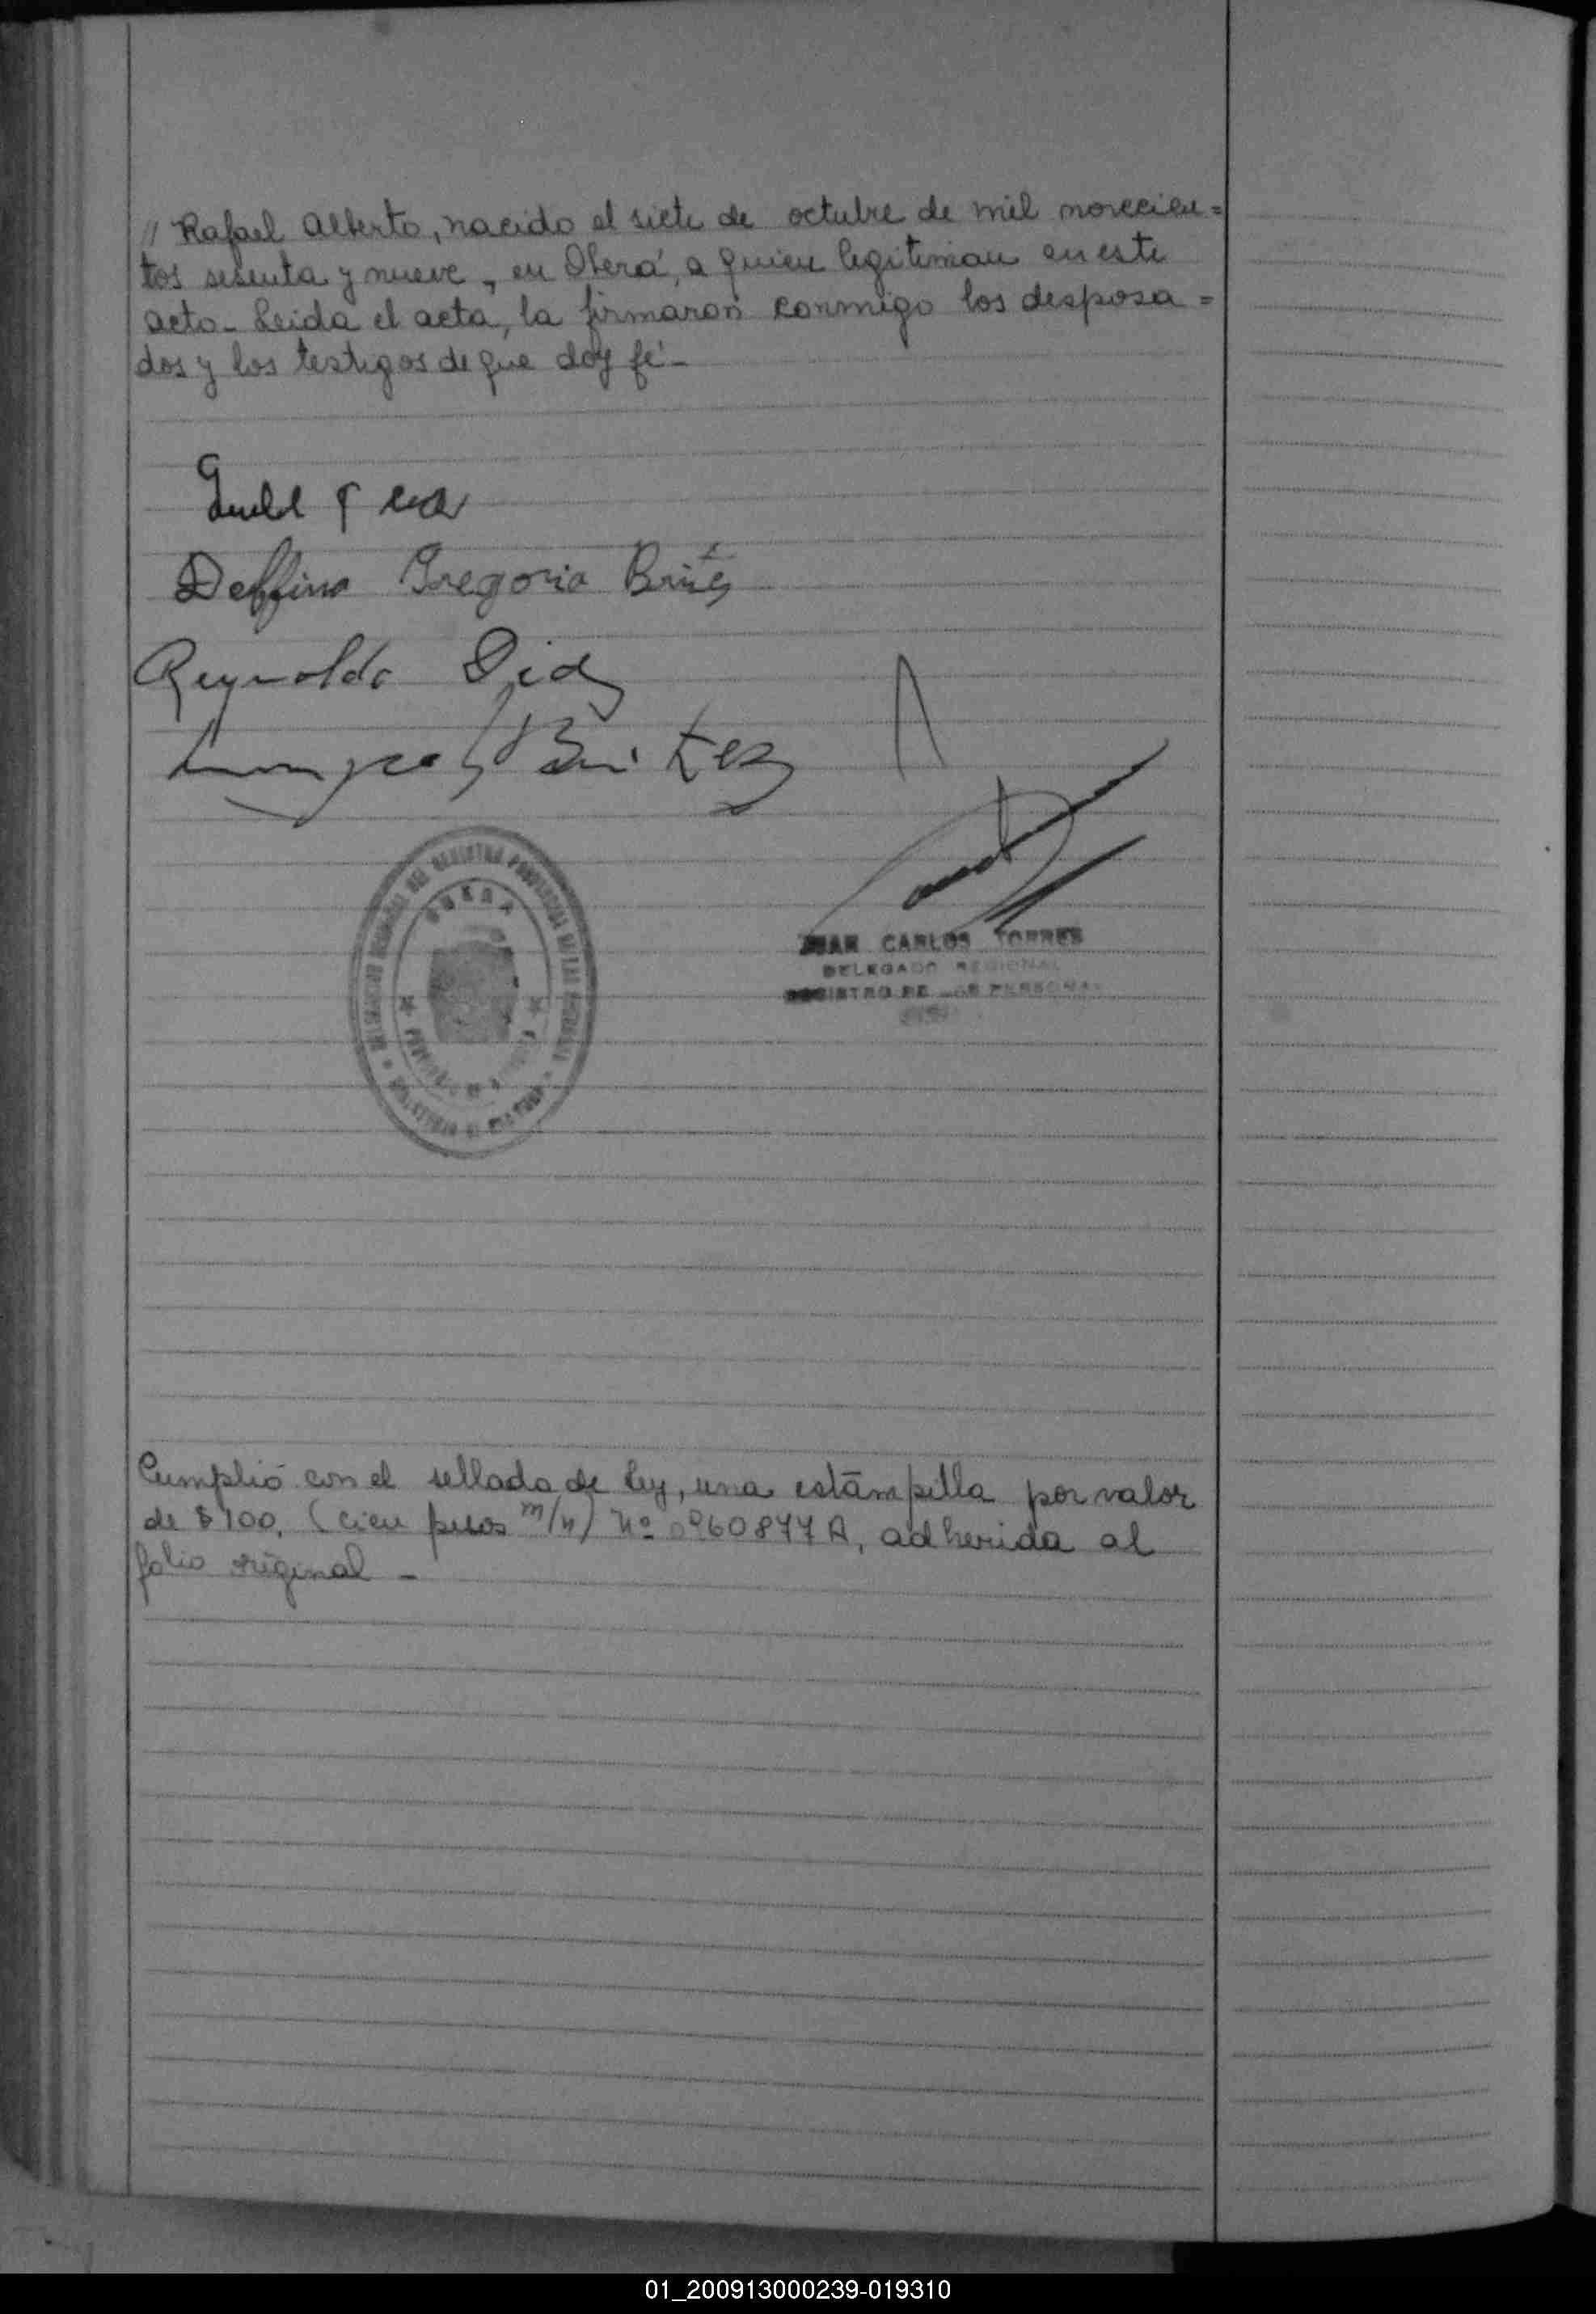 // Rafael Alberto, nacido el siete de octubre de mil novecien=
tos sesenta y nueve, en Oberá, a quien legitiman en este
acto. Leida el acta, la firmaron conmigo los desposa=
dos y los testigos de que doy fé.-
Delfina Gregoria
Reynoldo
JUAN CARLOS TORRES
DELEGADO REGIONAL
REGISTRO DE LAS PERSONAS
OBERA
Cumplió con el sellado de Ley, una estampilla por valor
de $100, (cien pesos m/n) Nº 0960877 A, adherida al
folio original -
01_200913000239-019310